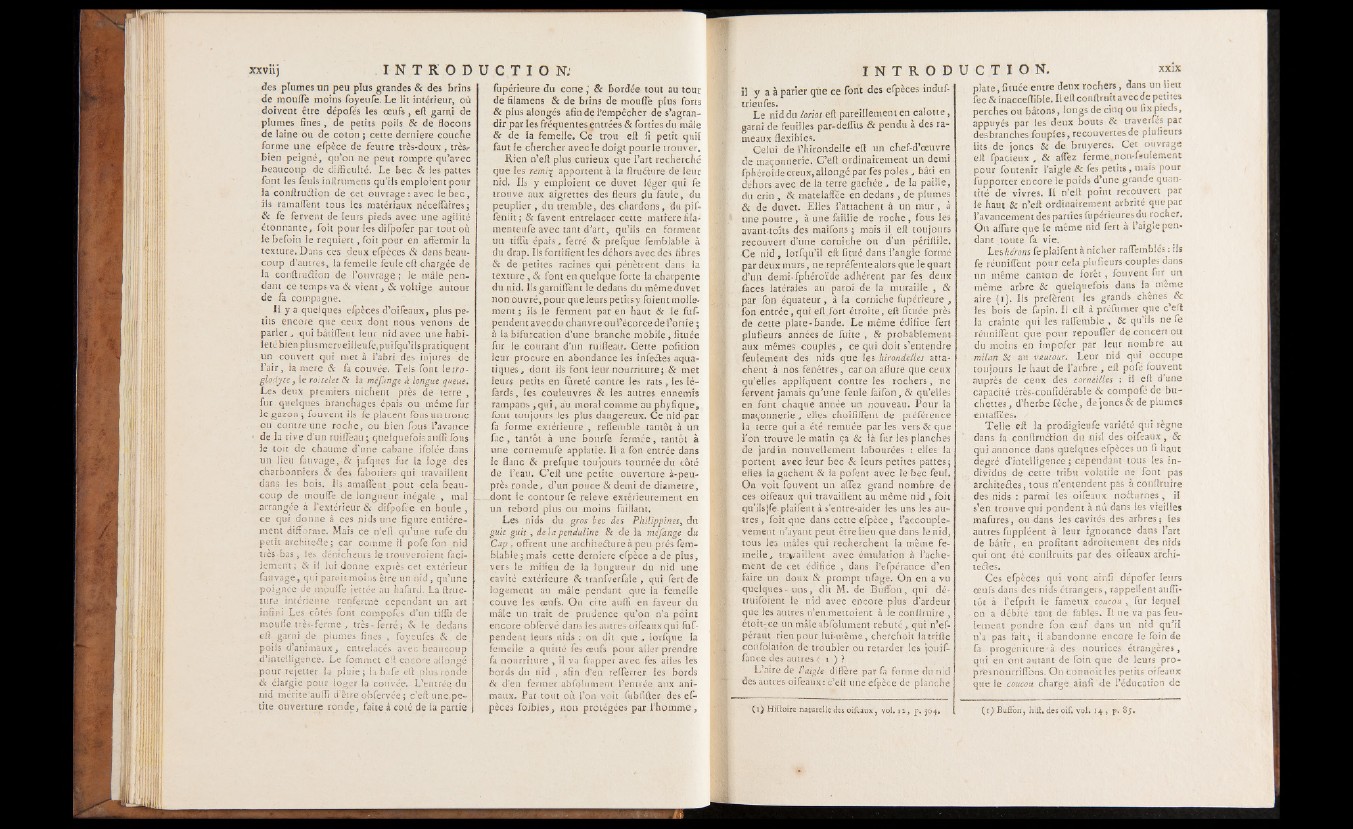 xxviij INTRODUCTION.
des plumes un peu plus grandes & des brins
de mousse moins soyeuse. Le lit intérieur, où
doivent être déposés les œufs, est garni de
plumes fines, de petits poils & de flocons
de laine ou de coton ; cette derniere couche
forme une espèce de feutre très-doux, très-
bien peigné, qu'on ne peut rompre qu'avec
beaucoup de difficulté. Le bec & les pattes
sont les seuls instrumens qu'ils emploient pour
la construction de cet ouvrage : avec le bec,
ils ramassent tous les matériaux nécessaires ;
& se servent de leurs pieds avec une agilité
étonnante, soit pour les disposer par tout où
le besoin le requiert, soit pour en affermir la
texture. Dans ces deux espèces & dans beau-
coup d'autres, la femelle seule est chargée de
la construction de l'ouvrage ; le mâle pen-
dant ce temps va & vient, & voltige autour
de sa compagne.
Il y a quelques espèces d'oiseaux, plus pe-
tits encore que ceux dont nous venons de
parler, qui bâtissent leur nid avec une habi-
leté bien plus merveilleuse, puisqu'ils pratiquent
un couvert qui met à l'abri des injures de
l'air, la mere & sa couvée. Tels sont le tro-
glodyte, le roitelet & la mésange à longue queue.
Les deux premiers nichent près de terre,
sur quelques branchages épais ou même sur
le gazon ; souvent ils se placent sous un tronc
ou contre une roche, ou bien sous l'avance
de la rive d'un ruisseau ; quelquefois aussi sous
le toit de chaume d'une cabane isolée dans
un lieu sauvage, & jusques sur la loge des
charbonniers & des sabotiers qui travaillent
dans les bois. Ils amassent pour cela beau-
coup de mousse de longueur inégale, mal
arrangée à l'extérieur & disposée en boule,
ce qui donne à ces nids une figure entiére-
ment difforme. Mais ce n'est qu'une ruse du
petit architecte ; car comme il pose son nid
très-bas, les dénicheurs le trouveroient faci-
lement ; & il lui donne exprès cet extérieur
sauvage, qui paroît moins être un nid, qu'une
poignée de mousse jettée au hasard. La struc-
ture intérieure renferme cependant un art
infini. Les côtés sont composés d'un tissu de
mousse très-ferme, très-serré, & le dedans
est garni de plumes fines, soyeuses & de
poils d'animaux, entrelacés avec beaucoup
d'intelligence. Le sommet est encore allongé
pour rejetter la pluie ; la base est plus ronde
& élargie pour loger la couvée. L'entrée du
nid mérite aussi d'être observée ; c'est une pe-
tite ouverture ronde, faite à coté de la partie
supérieure du cone, & bordée tout au tour
de filamens & de brins de mousse plus forts
& plus alongés afin de l'empêcher de s'agran-
dir par les fréquentes entrées & sorties du mâle
& de la femelle. Ce trou est si petit qu'il
faut le chercher avec le doigt pour le trouver.
Rien n'est plus curieux que l'art recherché
que les remiz apportent à la structure de leur
nid. Ils y emploient ce duvet léger qui se
trouve aux aigrettes des fleurs du saule, du
peuplier, du tremble, des chardons, du pis-
senlit ; & savent entrelacer cette matiere fila-
menteuse avec tant d'art, qu'ils en forment
un tissu épais, serré & presque semblable à
du drap. Ils fortifient les déhors avec des fibres
& de petites racines qui pénètrent dans la
texture, & font en quelque sorte la charpente
du nid. Ils garnissent le dedans du même duvet
non ouvré, pour que leurs petits y soient molle-
ment ; ils le ferment par en haut & le sus-
pendent avec du chanvre ou l'écorce de l'ortie ;
à la bifurcation d'une branche mobile, située
sur le courant d'un ruisseau. Cette position
leur procure en abondance les insectes aqua-
tiques, dont ils font leur nourriture ; & met
leurs petits en sûreté contre les rats, les lé-
sards, les couleuvres & les autres ennemis
rampans, qui, au moral comme au physique,
sont toujours les plus dangereux. Ce nid par
sa forme extérieure, ressemble tantôt à un
sac, tantôt à une bourse fermée, tantôt à
une cornemuse applatie. Il a son entrée dans
le flanc & presque toujours tournée du côté
de l'eau. C'est une petite ouverture à-peu-
près ronde, d'un pouce & demi de diametre,
dont le contour se releve extérieurement en
un rebord plus ou moins saillant.
Les nids du gros bec des Philippines, du
guit guit, de la penduline & de la mésange du
Cap, offrent une architecture à peu près sem-
blable ; mais cette derniere espèce a de plus,
vers le milieu de la longueur du nid une
cavité extérieure & transversale, qui sert de
logement au mâle pendant que la femelle
couve les œufs. On cite aussi en faveur du
mâle un trait de prudence qu'on n'a point
encore observé dans les autres oiseaux qui sus-
pendent leurs nids : on dit que, lorsque la
femelle a quitté ses œufs pour aller prendre
sa nourriture, il va frapper avec ses ailes les
bords du nid, afin d'en resserrer les bords
& d'en fermer absolument l'entrée aux ani-
maux. Par tout où l'on voit subsister des es-
pèces foibles, non protégées par l'homme,
INTRODUCTION. xxix
il y a à parier que ce sont des espèces indus-
trieuses.
Le nid du loriot est pareillement en calotte,
garni de feuilles par-dessus & pendu à des ra-
meaux flexibles.
Celui de l'hirondelle est un chef-d'œuvre
de maçonnerie. C'est ordinairement un demi
sphéroïde creux, allongé par ses poles, bâti en
dehors avec de la terre gachée, de la paille,
du crin, & matelassée en dedans, de plumes
& de duvet. Elles l'attachent à un mur, à
une poutre, à une saillie de roche, sous les
avant-toîts des maisons ; mais il est toujours
recouvert d'une corniche ou d'un péristile.
Ce nid, lorsqu'il est situé dans l'angle formé
par deux murs, ne représente alors que le quart
d'un demi-sphéroïde adhérent par ses deux
faces latérales au paroi de la muraille, &
par son équateur, à la corniche supérieure,
son entrée, qui est fort étroite, est située près
de cette plate-bande. Le même édifice sert
plusieurs années de suite, & probablement
aux mêmes couples, ce qui doit s'entendre
seulement des nids que les hirondelles atta-
chent à nos fenêtres, car on assure que ceux
qu'elles appliquent contre les rochers, ne
servent jamais qu'une seule saison, & qu'elles
en font chaque année un nouveau. Pour la
maçonnerie, elles choisissent de préférence
la terre qui a été remuée par les vers & que
l'on trouve le matin çà & là sur les planches
de jardin nouvellement labourées : elles la
portent avec leur bec & leurs petites pattes ;
elles la gachent & la posent avec le bec seul.
On voit souvent un assez grand nombre de
ces oiseaux qui travaillent au même nid, soit
qu'ils se plaisent à s'entre-aider les uns les au-
tres, soit que dans cette espèce, l'accouple-
vement n'ayant peut être lieu que dans le nid,
tous les mâles qui recherchent la même fe-
melle, travaillent avec émulation à l'ache-
ment de cet édifice, dans l'espérance d'en
faire un doux & prompt usage. On en a vu
quelques-uns, dit M. de Buffon, qui dé-
truisoient le nid avec encore plus d'ardeur
que les autres n'en mettoient à le construire,
étoit-ce un mâle absolument rebuté, qui n'es-
pérant rien pour lui-même, cherchoit la triste
consolation de troubler ou retarder les jouis-
sance des autres (1) ?
L'aire de l'aigle diffère par sa forme du nid
des autres oiseaux : c'est une espèce de planche
(1) Histoire naturelle des oiseaux, vol. 12, p. 304.
plate, située entre deux rochers, dans un lieu
sec & inaccessible. Il est construit avec de petites
perches ou bâtons, longs de cinq ou six pieds,
appuyés par les deux bouts & traversés par
des branches souples, recouvertes de plusieurs
lits de joncs & de bruyeres. Cet ouvrage
est spacieux, & assez ferme, non-seulement
pour soutenir l'aigle & ses petits, mais pour
supporter encore le poids d'une grande quan-
tité de vivres. Il n'est point recouvert par
le haut & n'est ordinairement arbrité que par
l'avancement des parties supérieures du rocher.
On assure que le même nid sert à l'aigle pen-
dant toute sa vie.
Les hérons se plaisent à nicher rassemblés : ils
se réunissent pour cela plusieurs couples dans
un même canton de forêt, souvent sur un
même arbre & quelquefois dans la même
aire (1). Ils préfèrent les grands chênes &
les bois de sapin. Il est à présumer que c'est
la crainte qui les rassemble, & qu'ils ne se
réunissent que pour repousser de concert ou
du moins en imposer par leur nombre au
milan & au vautour. Leur nid qui occupe
toujours le haut de l'arbre, est posé souvent
auprès de ceux des corneilles : il est d'une
capacité très-considérable & composé de bu-
chettes, d'herbe sèche, de joncs & de plumes
entassées.
Telle est la prodigieuse variété qui règne
dans la construction du nid des oiseaux, &
qui annonce dans quelques espèces un si haut
degré d'intelligence ; cependant tous les in-
dividus de cette tribu volatile ne sont pas
architectes, tous n'entendent pas à construire
des nids : parmi les oiseaux nocturnes, il
s'en trouve qui pondent à nu dans les vieilles
masures, ou dans les cavités des arbres ; les
autres suppléent à leur ignorance dans l'art
de bâtir, en profitant adroitement des nids
qui ont été construits par des oiseaux archi-
tectes.
Ces espèces qui vont ainsi déposer leurs
œufs dans des nids étrangers, rappellent aussi-
tôt à l'esprit le fameux coucou, sur lequel
on a débité tant de fables. Il ne va pas seu-
lement pondre son œuf dans un nid qu'il
n'a pas fait, il abandonne encore le soin de
sa progéniture à des nourices étrangères,
qui en ont autant de soin que de leurs pro-
pres nourrissons. On connoît les petits oiseaux
que le coucou charge ainsi de l'éducation de
(1) Buffon, hist. des ois. vol. 14, p. 85.